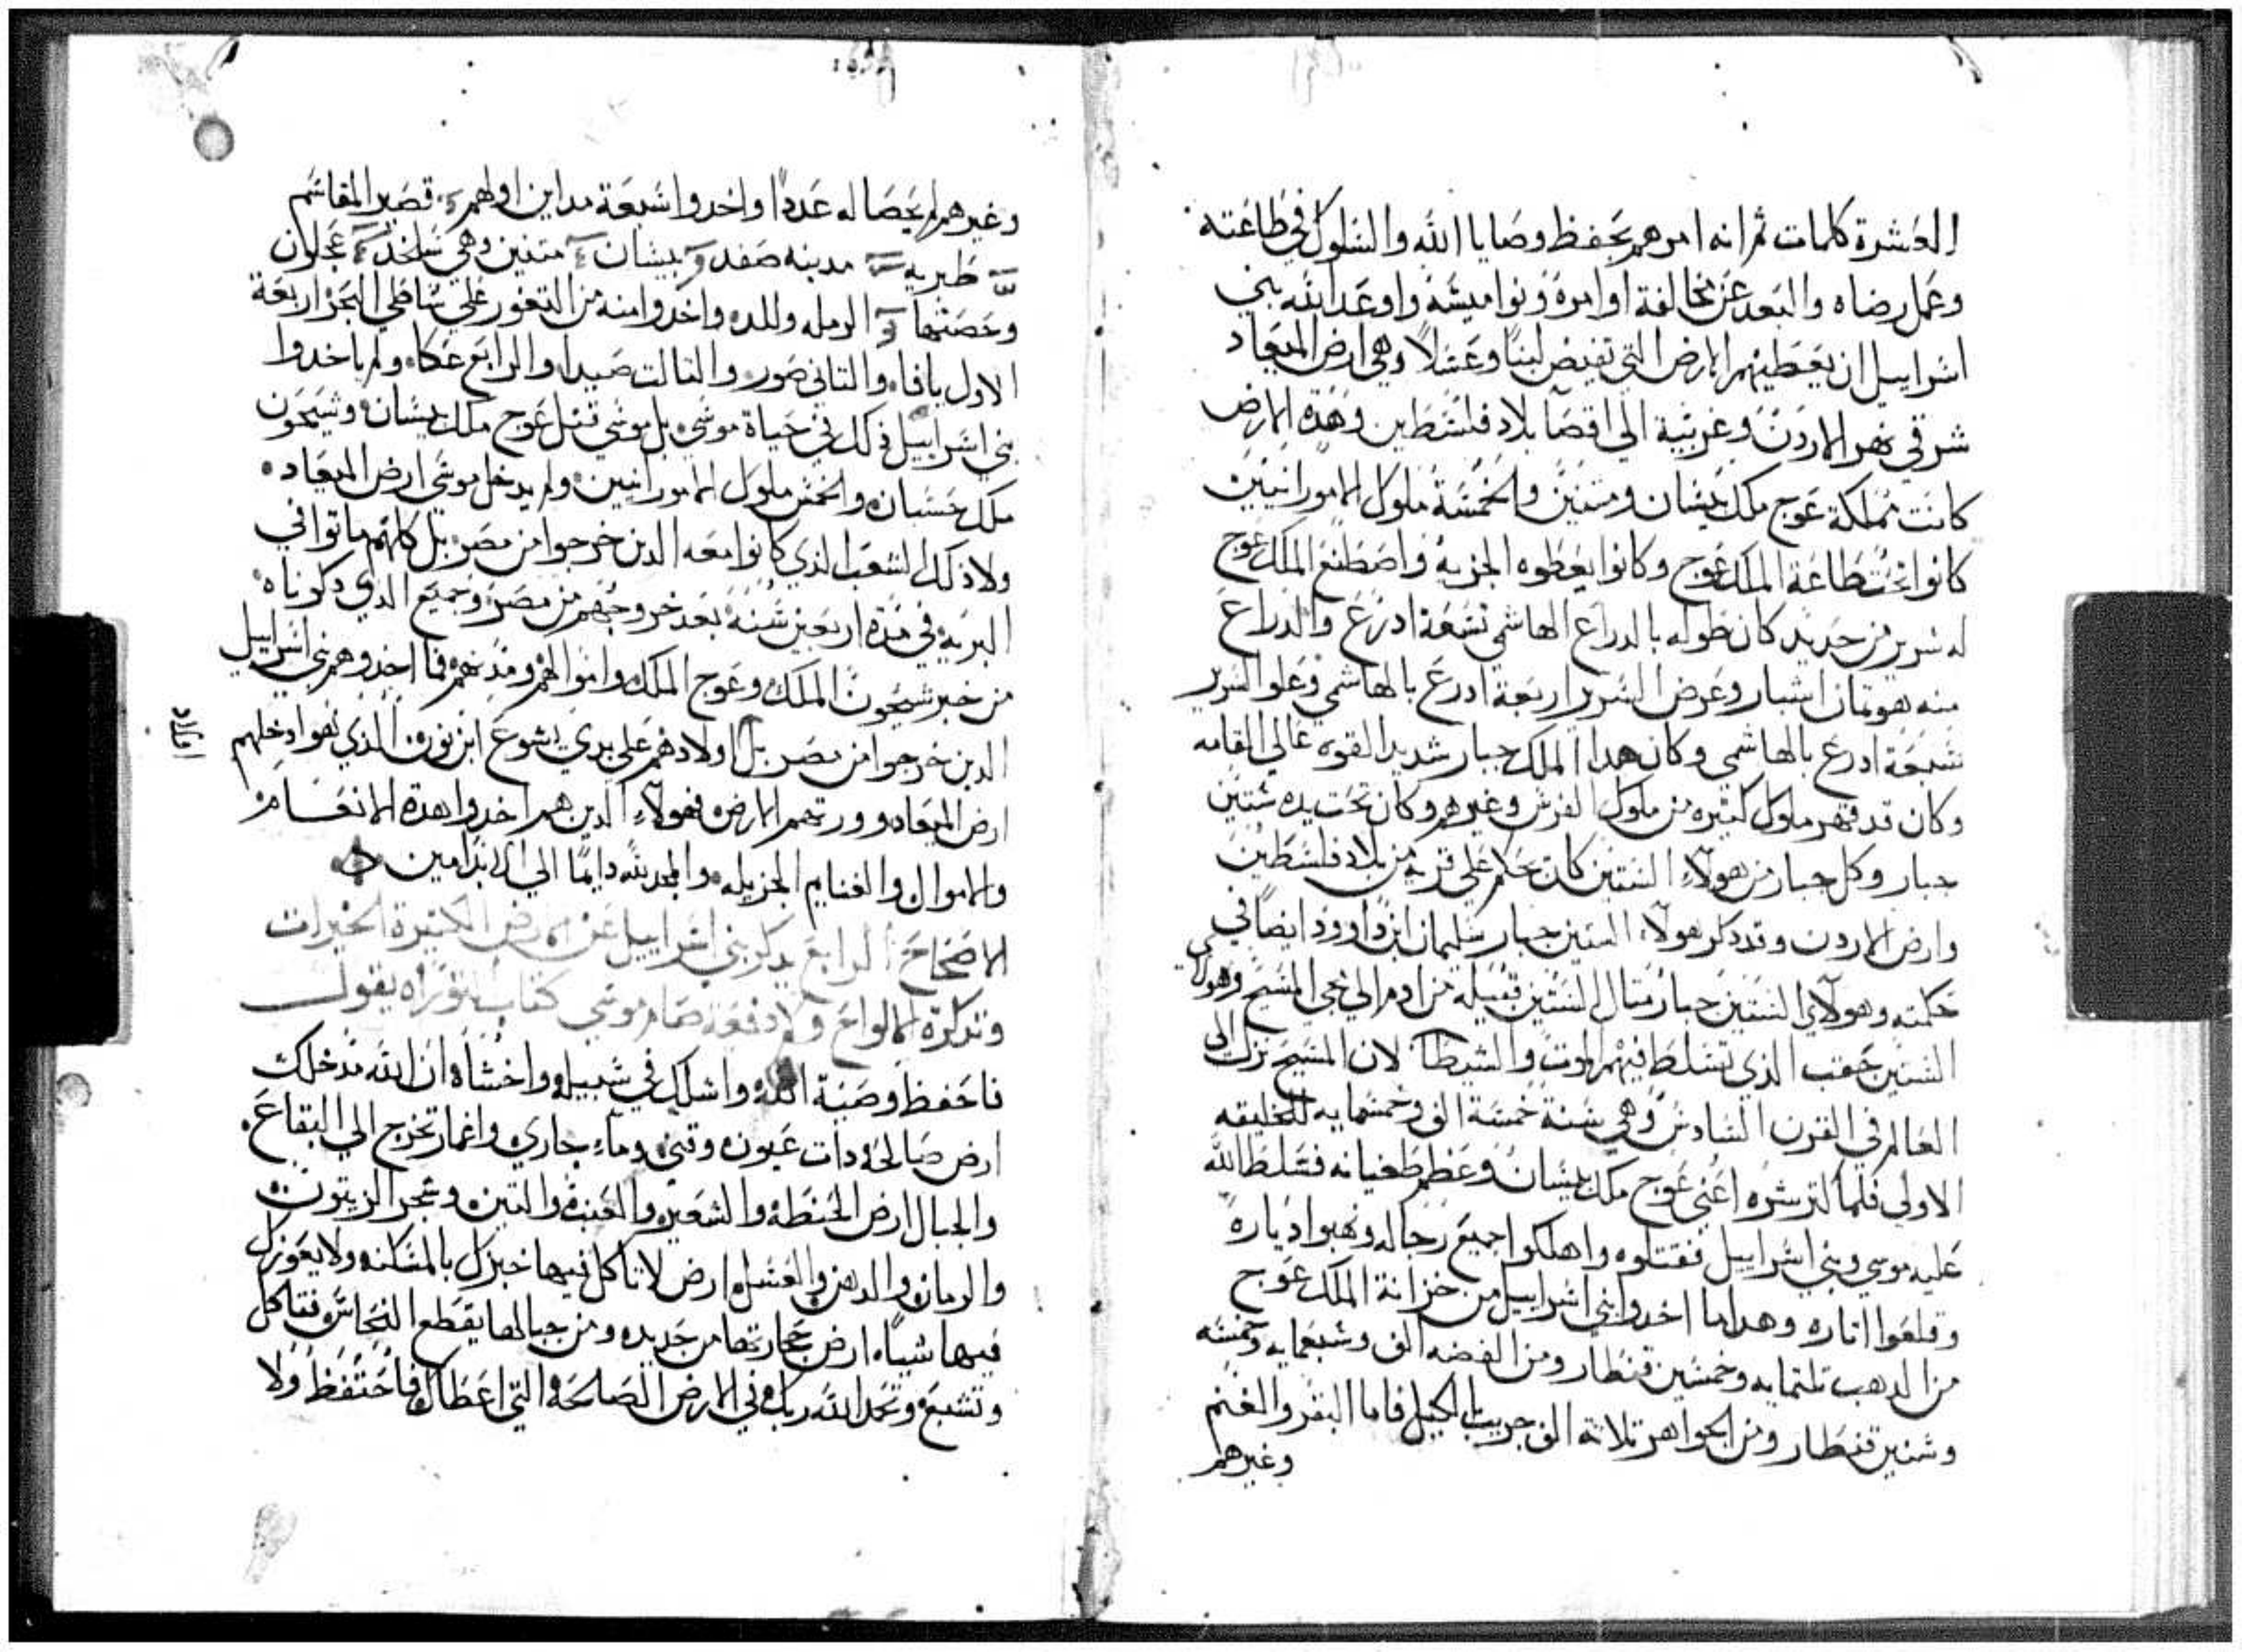 العشرة كلمات ثم انه امرهم بحفظ وصايا الله والسلوك في طاعته
وعمل رضاه والبعد عن مخالفة اوامره ونواميسه واوعد الله بني
اسراييل ان يعطيهم الارض التي تفيض لبنا وعسلا وهي ارض الميعاد
شرقي نهر الاردن وغربية الي اقصا بلاد فلسطين وهذه الارض
كانت مملكة عوج ملك بيسان ومتنين والخمسة ملوك الامورانيين
كانوا تحت طاعة الملك عوج وكانوا يعطوه الجزيه واصطنع الملك عوج
له سرير من حديد كان طوله بالدراع الهاشمي تسعة ادرع والدراع
منه هو تمان اشبار وعرض السرير اربعة ادرع بالهاشمي وعلو السرير
سبعة ادرع بالهاشمي وكان هدا الملك جبار شديد القوه عالي القامه
وكان قد قهر ملوك كثيره من ملوك الفرس وغيرهم وكان تحت يده ستين
جبار وكل جبار من هولاء الستين كان حاكم علي قريه من بلاد فلسطين
وارض الاردن وقد دكر هولاء الستين جبار سليمان ابن داوود ايضا في
حكمته وهولاي الستين جبار متال الستين قبيله من ادم الي مجي المسيح وهولاي
الستين حقب الذي تسلط فيهم الموت والشيطان لان المسيح نزل الي
العالم في القرن السادس وهي سنة خمسة الف وخمسمايه للخليقه
الاولي فلما كتر شره اعني عوج ملك بيسان وعظم طغيانه فسلط الله
عليه موسي وبني اسراييل فقتلوه واهلكوا جميع رجاله ونهبوا دياره
وقلعوا اتاره وهدا ما اخدوا بني اسراييل من خزانة الملك عوج
من الدهب تلتمايه وخمسين قنطار ومن الفضه الف وسبعمايه وخمسه
وستين قنطار ومن الجواهر تلاتة الف جريب بالكيل فاما البقر والغنم
وغيرهم
وغيرهم لم يحصا له عددا واخدوا سبعة مداين اولهم قصير المقاسم
طبريه مدينه صفد بيسان متنين وهي سلخد عجلون
وحصنها الرمله واللد واخدوا منه من التغور علي شاطي البحر اربعة
الاول يافا والتاني صور والتالت صيدا والرابع عكا ولم ياخدوا
بني اسراييل دلك في حياة موسي بل موسي قتل عوج ملك بيسان وسيحون
ملك حسبان والخمس ملوك الامورانيين ولم يدخل موسي ارض الميعاد
ولا ذلك الشعب الذي كانوا معه الدين خرجوا من مصر بل كلهم ماتوا في
البريه في مدة اربعين سنة بعد خروجهم من مصر وجميع الدي دكرناه
من خبر سيحون الملك وعوج الملك واموالهم ومدنهم فما اخدوهم بني اسراييل
الدين خرجوا من مصر بل اولادهم علي يدي يشوع ابن نون الذي هو ادخلهم
ارض الميعاد وورتهم الارض فهولاء الدين هم اخدوا هدة الانعام
والاموال والغنايم الجزيله والمجد لله دايما الي الابد امين
الاصحاح الرابع يدكر بني اسراييل عن الارض الكتيرة الخيرات
وتدكرة الالواح صام موسي كتاب التوراه يقول
فاحفظ وصية الله واسلك في سبيله واخشاه ان الله مدخلك
ارض صالحه دات عيون وقني وماء جاري واغمار تخرج الي البقاع
والجبال ارض الحنطه والشعير والعنب والتين وشجر الزيتون
والرمان والدهن والعسل ارض لا تاكل فيها خبزك بالمسكنه ولا يعوزك
فيها شيا ارض حجارتها من حديد ومن جبالها يقطع النحاس فتاكل
وتشبع وتحمد الله ربك في الارض الصالحة التي اعطاك فاحتفظ ولا